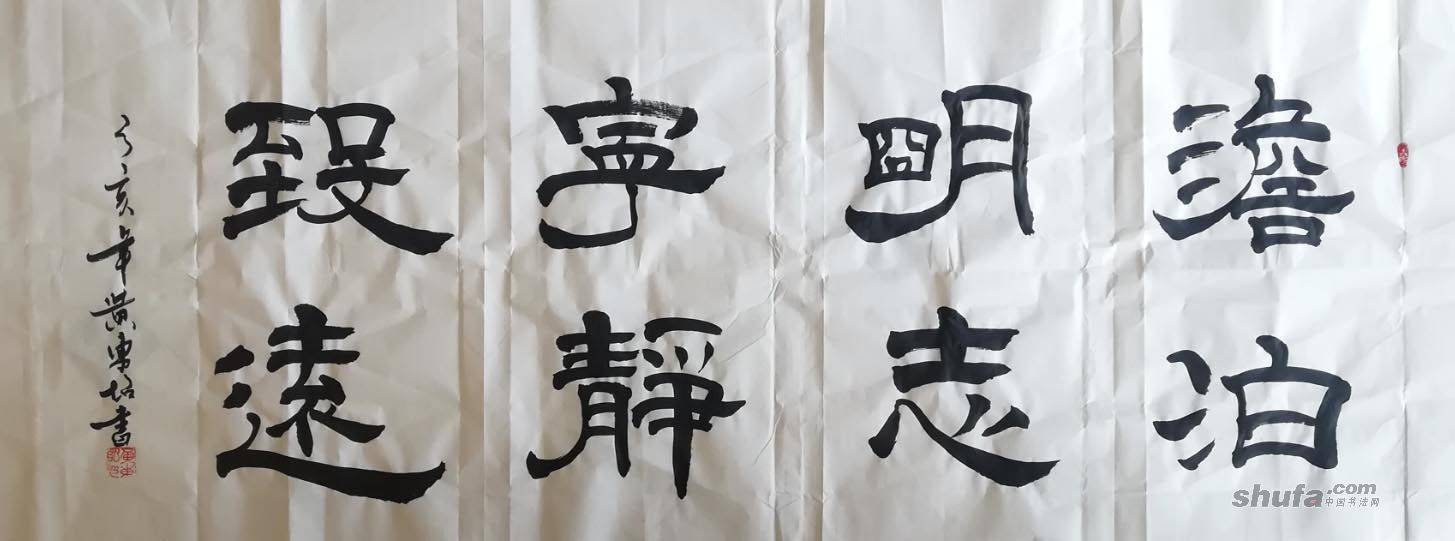 澹泊
明志
寧靜
致遠
己亥年黄東均書
shufa.com
中国书法网